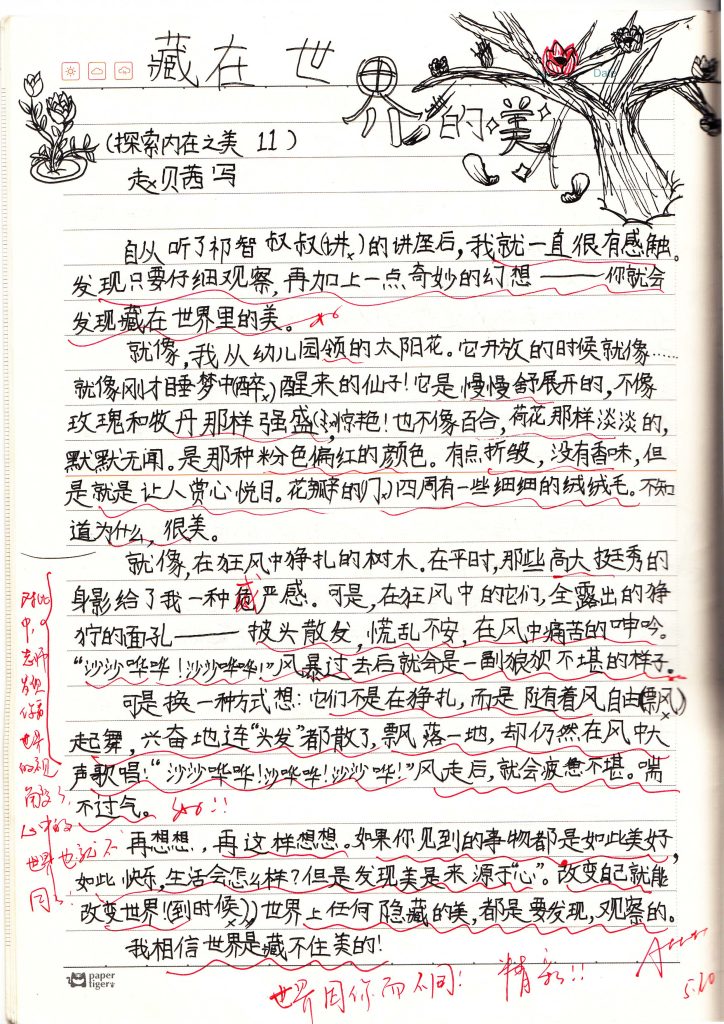 藏在世界的美
Date
(探索内在之美 11)
赵贝茜写
自从听了祁智叔叔(讲)的讲座后,我就一直很有感触。
发现只要仔细观察,再加上一点奇妙的幻想——你就会
发现藏在世界里的美。
就像,我从幼儿园领的太阳花。它开放的时候就像……
就像刚才睡梦中(醉)醒来的仙子!它是慢慢舒展开的,不像
玫瑰和牧丹那样强盛,惊艳!也不像百合,荷花那样淡淡的,
默默无闻。是那种粉色偏红的颜色。有点折皱,没有香味,但
是就是让人赏心悦目。花瓣的(门)四周有一些细细的绒绒毛。不知
道为什么,很美。
就像,在狂风中狰扎的树木。在平时,那些高大挺秀的
身影给了我一种威严感。可是,在狂风中的它们,全露出的狰
狞的面孔——披头散发,慌乱不安,在风中痛苦的呻吟。
“沙沙哗哗!沙沙哗哗!”风暴过去后就会是一副狼狈不堪的样子。
可是换一种方式想:它们不是在狰扎,而是随着风自由(飘风)
起舞,兴奋地连“头发”都散了,飘落一地,却仍然在风中大
声歌唱:“沙沙哗哗!沙哗哗!沙沙哗!”风走后,就会疲惫不堪。喘
不过气。
再想想,再这样想想。如果你见到的事物都是如此美好,
如此快乐,生活会怎么样?但是发现美是来源于“心”。改变自己就能
改变世界!(到时候),世界上任何隐藏的美,都是要发现,观察的。
我相信世界是藏不住美的!
对比
中,
老师
发现
你看
世界
的视
角变了,
心中的
世界也就不
同了
paper
tiger
世界因你而不同!
精彩!!
5.20